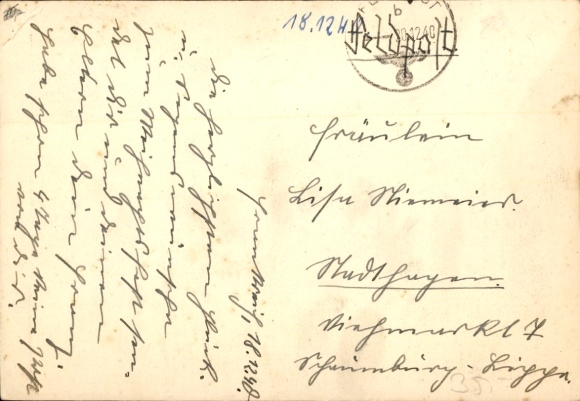 18.12.40
Feldpost.
Fräulein
Lisa Niemeier.
Stadthagen.
Viehmarkt 7
Schaumburg-Lippe.
18.12.40.
Die herzlichsten Glück-
u. Segenswünsche
zum Weihnachtsfest sen-
det dir und deinen
Eltern dein Franz.
Habe schon 4 Tage keine Post